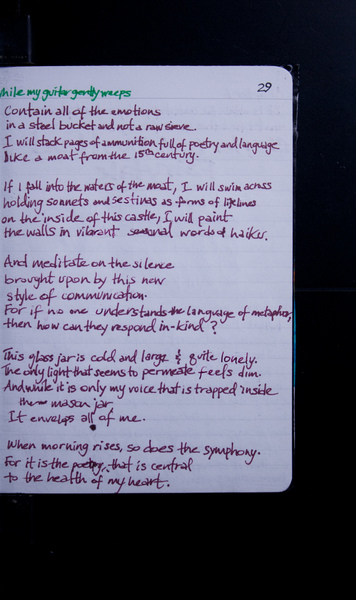 29
While my guitar gently weeps
Contain all of the emotions
in a steel bucket and not a raw sieve.
I will stack pages of ammunition full of poetry and language
like a moat from the 15th century.
If I fall into the waters of the moat, I will swim across
holding sonnets and sestinas as forms of lifelines
on the inside of this castle, I will paint
the walls in vibrant seasonal words of haiku.
And meditate on the silence
brought upon by this new
style of communication.
For if no one understands the language of metaphor,
then how can they respond in-kind?
This glass jar is cold and large & quite lonely.
The only light that seems to permeate feels dim.
And while it is only my voice that is trapped inside
the mason jar
It envelops all of me.
When morning rises, so does the symphony.
For it is the poetry, that is central
to the health of my heart.